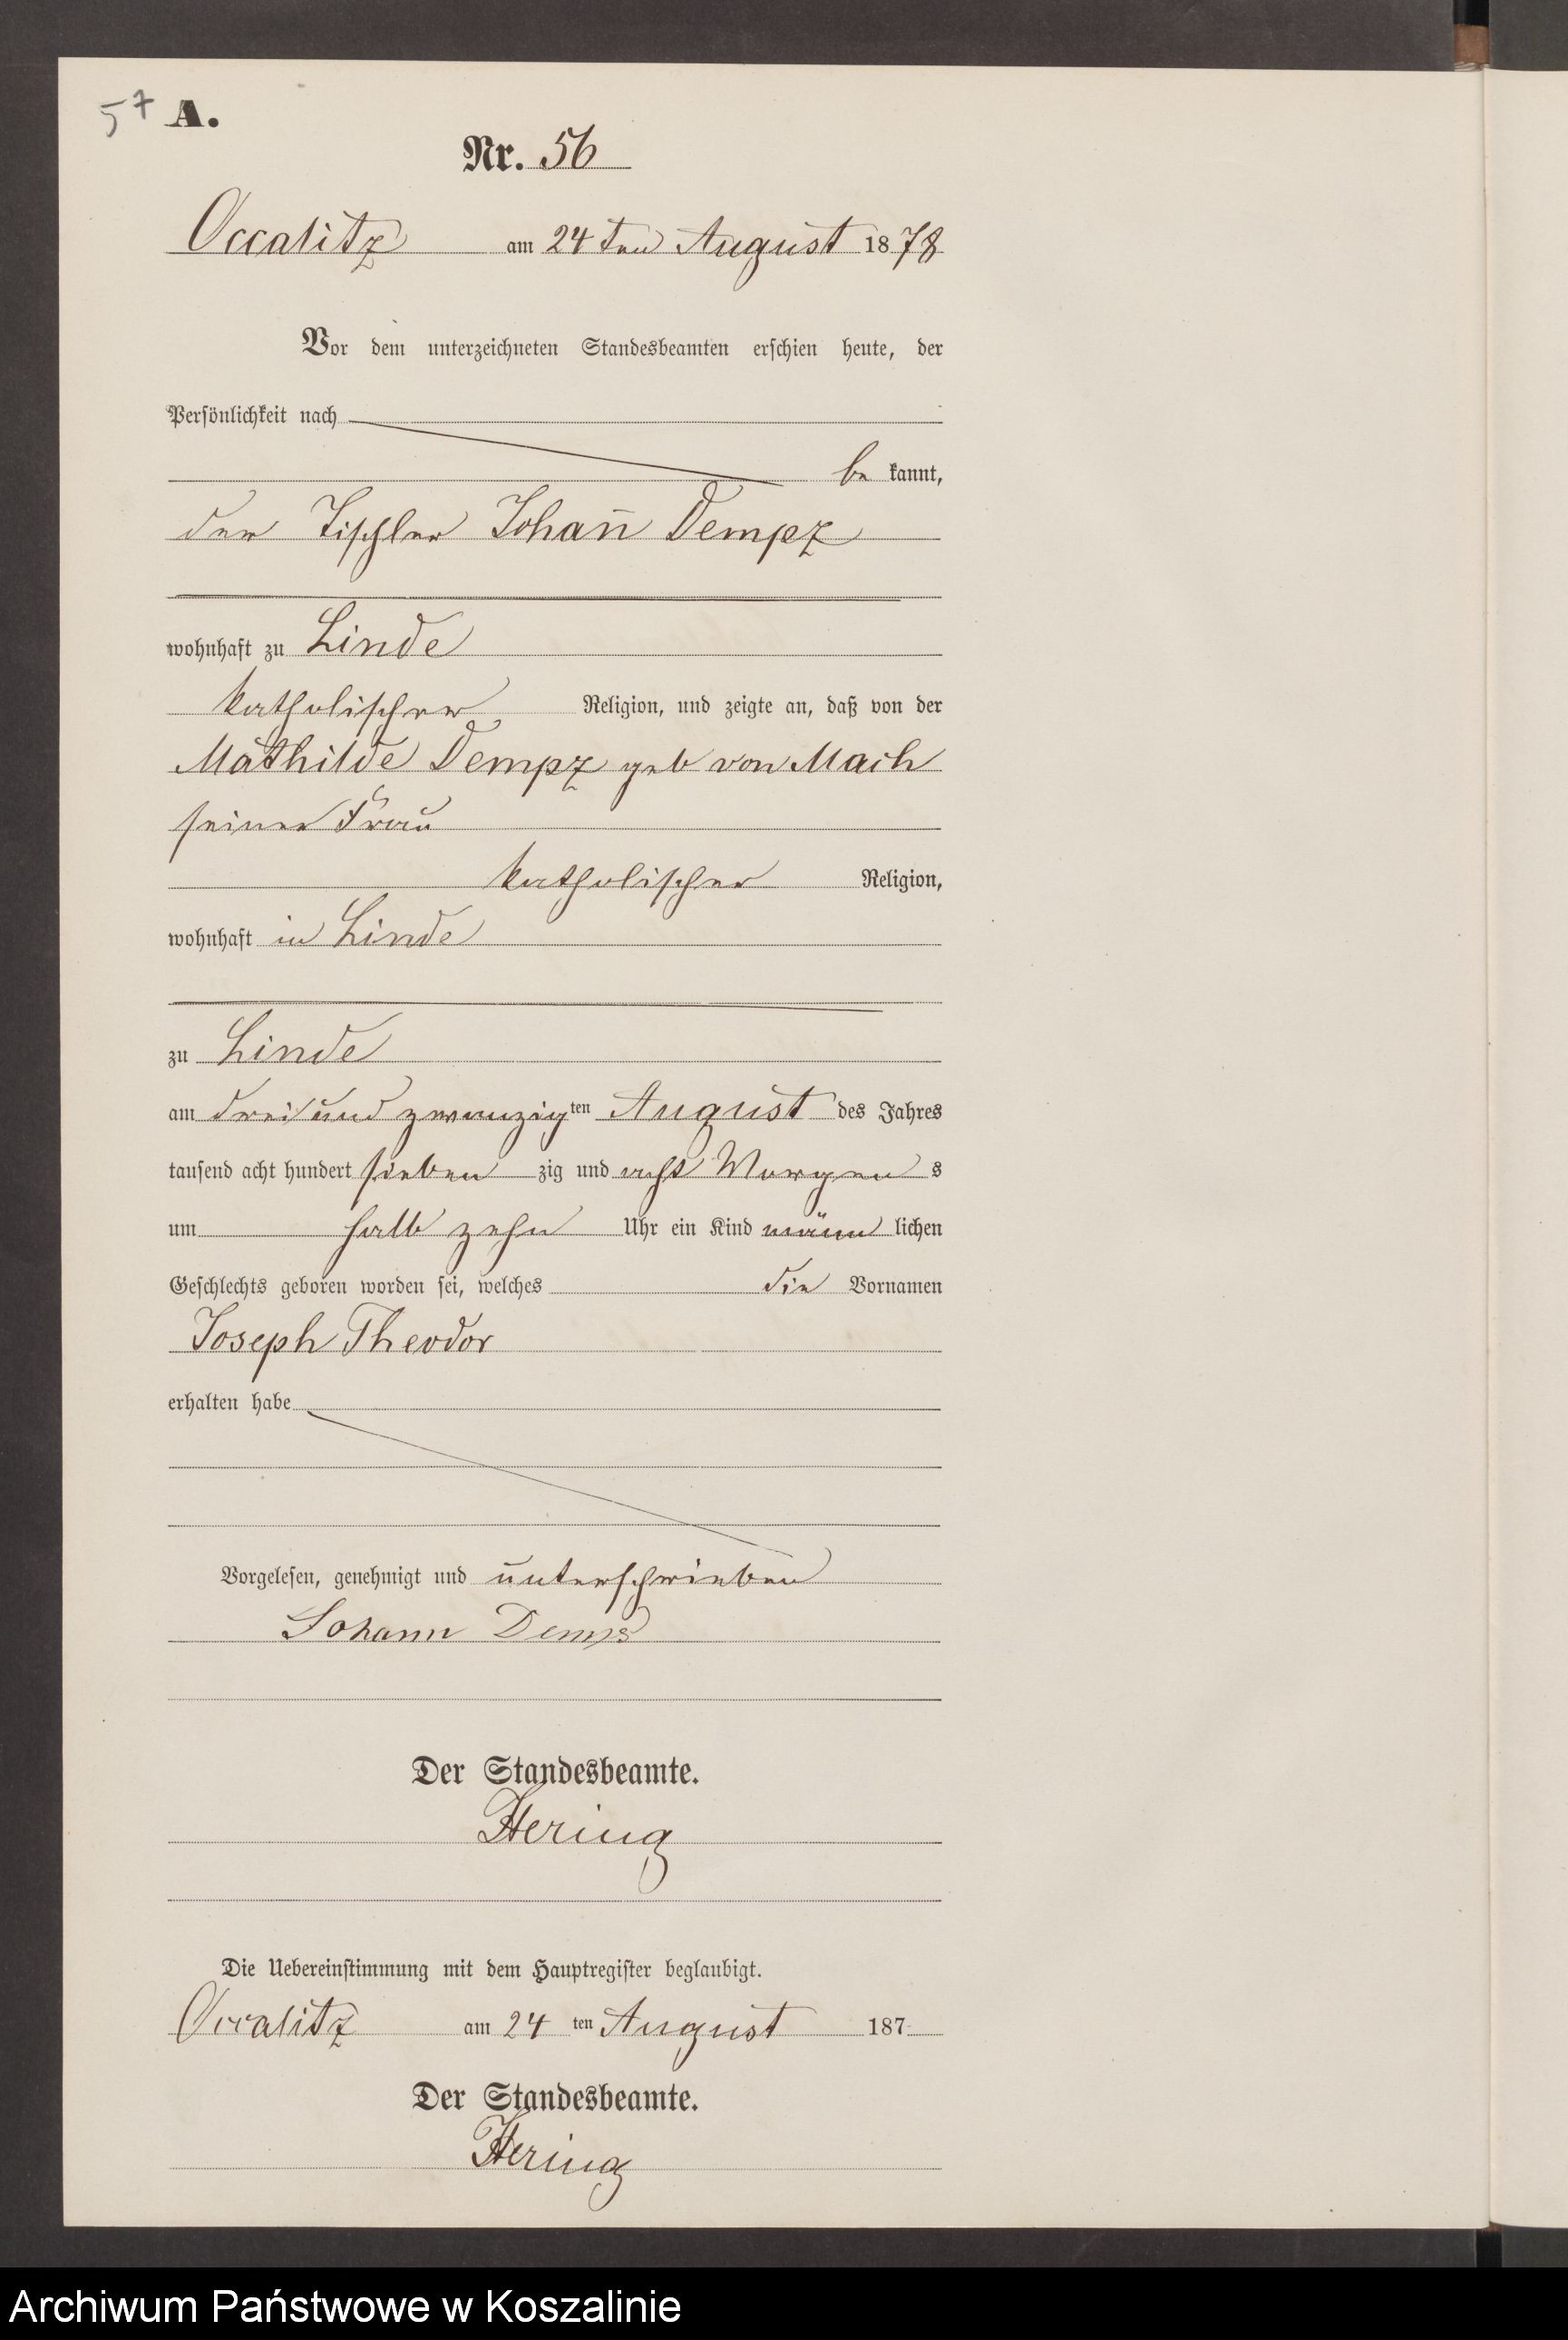 57 A.
Nr. 56
Occalitz am 24 ten August 1878
Vor dem unterzeichneten Standesbeamten erschien heute, der
Persönlichkeit nach
be kannt,
der Tischler Johan̄ Dempz
wohnhaft zu Linde
katholischer Religion, und zeigte an, daß von der
Mathilde Dempz geb von Mach
seiner Frau
katholischer Religion,
wohnhaft in Linde
zu Linde
am drei und zwanzig ten August des Jahres
tausend acht hundert sieben zig und acht Morgen s
um halb zehn Uhr ein Kind männ lichen
Geschlechts geboren worden sei, welches die Vornamen
Joseph Theodor
erhalten habe
Vorgelesen, genehmigt und unterschrieben
Johann Demps
Der Standesbeamte.
Hering
Die Uebereinstimmung mit dem Hauptregister beglaubigt.
Occalitz am 24 ten August 187
Der Standesbeamte.
Hering
Archiwum Państwowe w Koszalinie